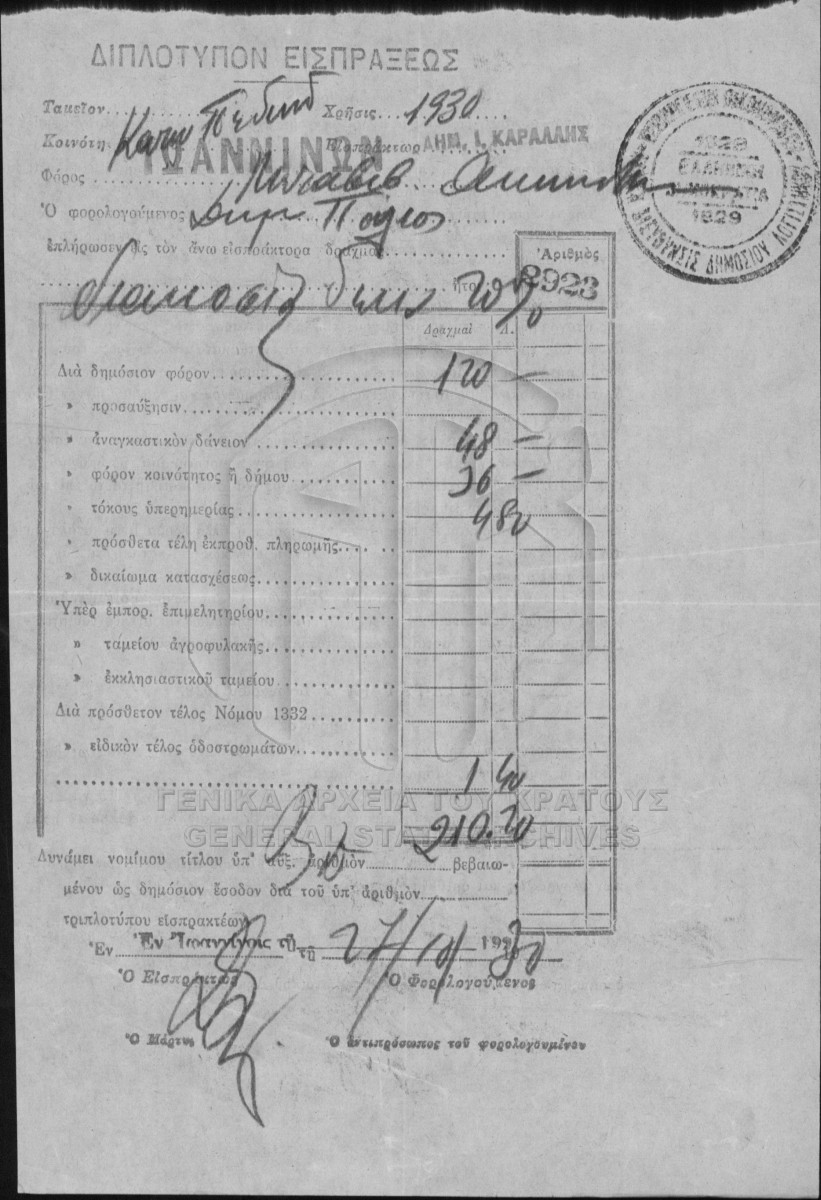 ΔΙΠΛΟΤΥΠΟΝ ΕΙΣΠΡΑΞΕΩΣ
Ταμεῖον Χρῆσις 1930
Κοινότη Εἰσπράκτωρ ΔΗΜ. Ι. ΚΑΡΑΛΛΗΣ
ΙΩΑΝΝΙΝΩΝ
Φόρος
Ὁ φορολογούμενος
ἐπλήρωσεν εἰς τὸν ἄνω εἰσπράκτορα δραχμὰς
διακοσίας δέκα 20% ἤτοι
Ἀριθμὸς
8923
1929
ΕΛΛΗΝΙΚΗ
ΔΗΜΟΚΡΑΤΙΑ
1929
Δραχμαὶ Λ.
Διὰ δημόσιον φόρον 120 —
» προσαύξησιν
» ἀναγκαστικὸν δάνειον 48 —
» φόρον κοινότητος ἢ δήμου 36 —
» τόκους ὑπερημερίας 4 80
» πρόσθετα τέλη ἐκπροθ. πληρωμῆς
» δικαίωμα κατασχέσεως
Ὑπὲρ ἐμπορ. ἐπιμελητηρίου
» ταμείου ἀγροφυλακῆς
» ἐκκλησιαστικοῦ ταμείου
Διὰ πρόσθετον τέλος Νόμου 1332
» εἰδικὸν τέλος ὁδοστρωμάτων
1 40
ΓΕΝΙΚΑ ΑΡΧΕΙΑ ΤΟΥ ΚΡΑΤΟΥΣ
GENERAL STATE ARCHIVES
210.20
Δυνάμει νομίμου τίτλου ὑπ' αὔξ. ἀριθμὸν βεβαιω-
μένου ὡς δημόσιον ἔσοδον διὰ τοῦ ὑπ' ἀριθμὸν
τριπλοτύπου εἰσπρακτέων
Ἐν Ἐν Ἰωαννίνοις τῇ τῇ 27/10/1930
Ὁ Εἰσπράκτωρ Ὁ Φορολογούμενος
Ὁ Μάρτυς Ὁ ἀντιπρόσωπος τοῦ φορολογουμένου